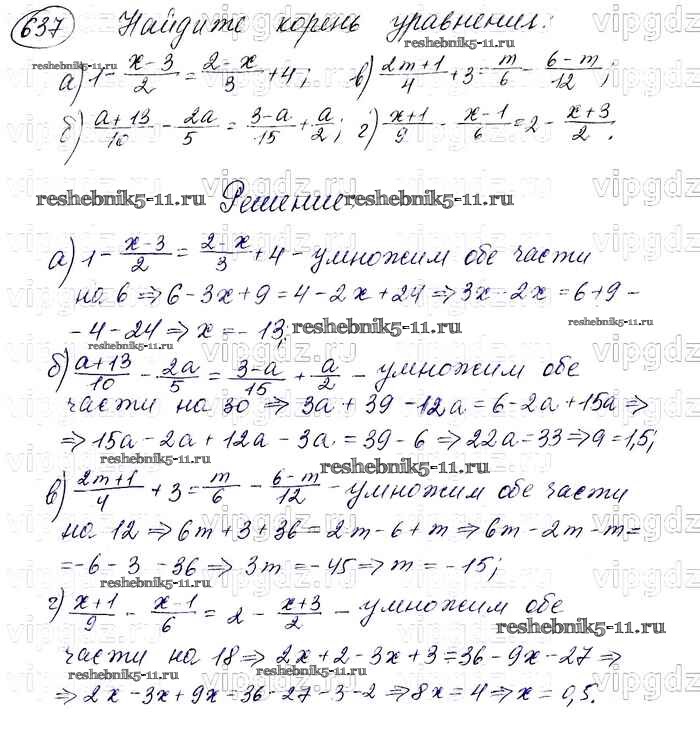 637 Найдите корень уравнения:
а) 1 - (x-3)/2 = (2-x)/3 + 4; в) (2m+1)/4 + 3 = m/6 - (6-m)/12;
б) (a+13)/10 - 2a/5 = (3-a)/15 + a/2; г) (x+1)/9 - (x-1)/6 = 2 - (x+3)/2.
reshebnik5-11.ru Решение: reshebnik5-11.ru
а) 1 - (x-3)/2 = (2-x)/3 + 4 - умножим обе части
на 6 ⇒ 6 - 3x + 9 = 4 - 2x + 24 ⇒ 3x - 2x = 6 + 9 -
- 4 - 24 ⇒ x = - 13; reshebnik5-11.ru
б) (a+13)/10 - 2a/5 = (3-a)/15 + a/2 - умножим обе
части на 30 ⇒ 3a + 39 - 12a = 6 - 2a + 15a ⇒
⇒ 15a - 2a + 12a - 3a = 39 - 6 ⇒ 22a = 33 ⇒ 9 = 1,5;
reshebnik5-11.ru
в) (2m+1)/4 + 3 = m/6 - (6-m)/12 - умножим обе части
на 12 ⇒ 6m + 3 + 36 = 2m - 6 + m ⇒ 6m - 2m - m =
= -6 - 3 - 36 ⇒ 3m = -45 ⇒ m = -15;
reshebnik5-11.ru
г) (x+1)/9 - (x-1)/6 = 2 - (x+3)/2 - умножим обе
reshebnik5-11.ru
части на 18 ⇒ 2x + 2 - 3x + 3 = 36 - 9x - 27 ⇒
⇒ 2x - 3x + 9x = 36 - 27 - 3 - 2 ⇒ 8x = 4 ⇒ x = 0,5.
reshebnik5-11.ru